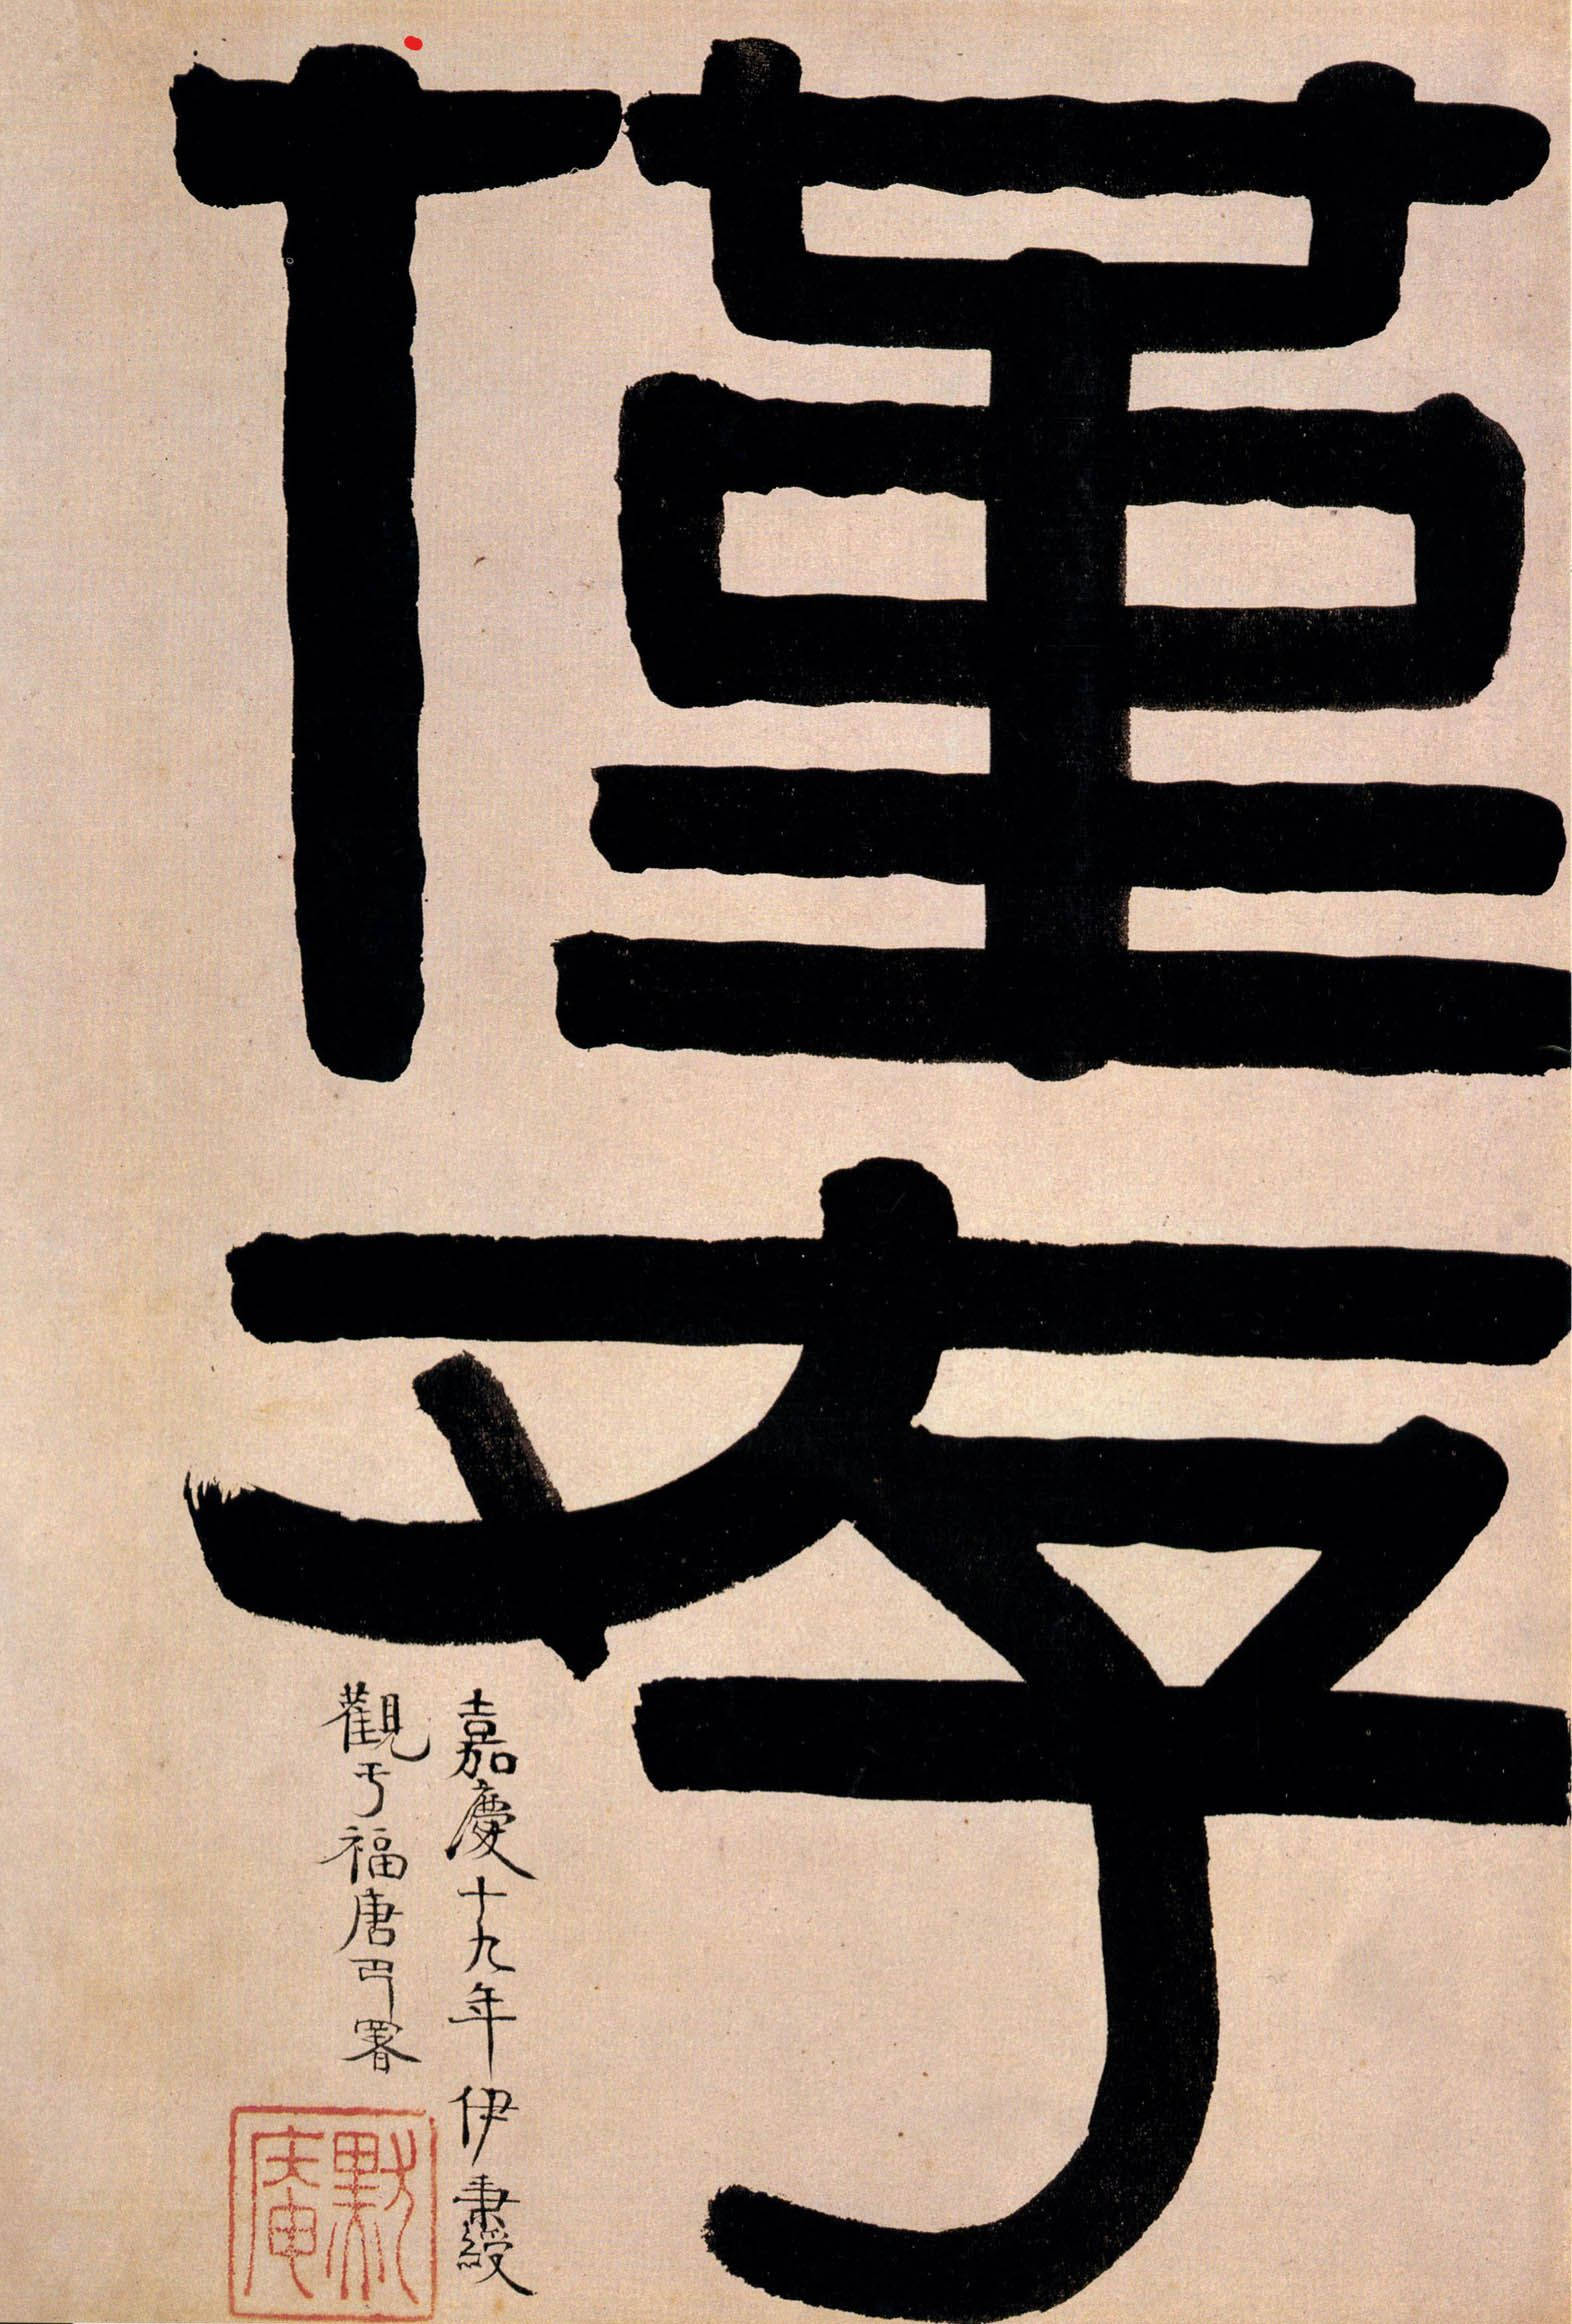 僅存
嘉慶十九年伊秉綬
觀于福唐署
默庵